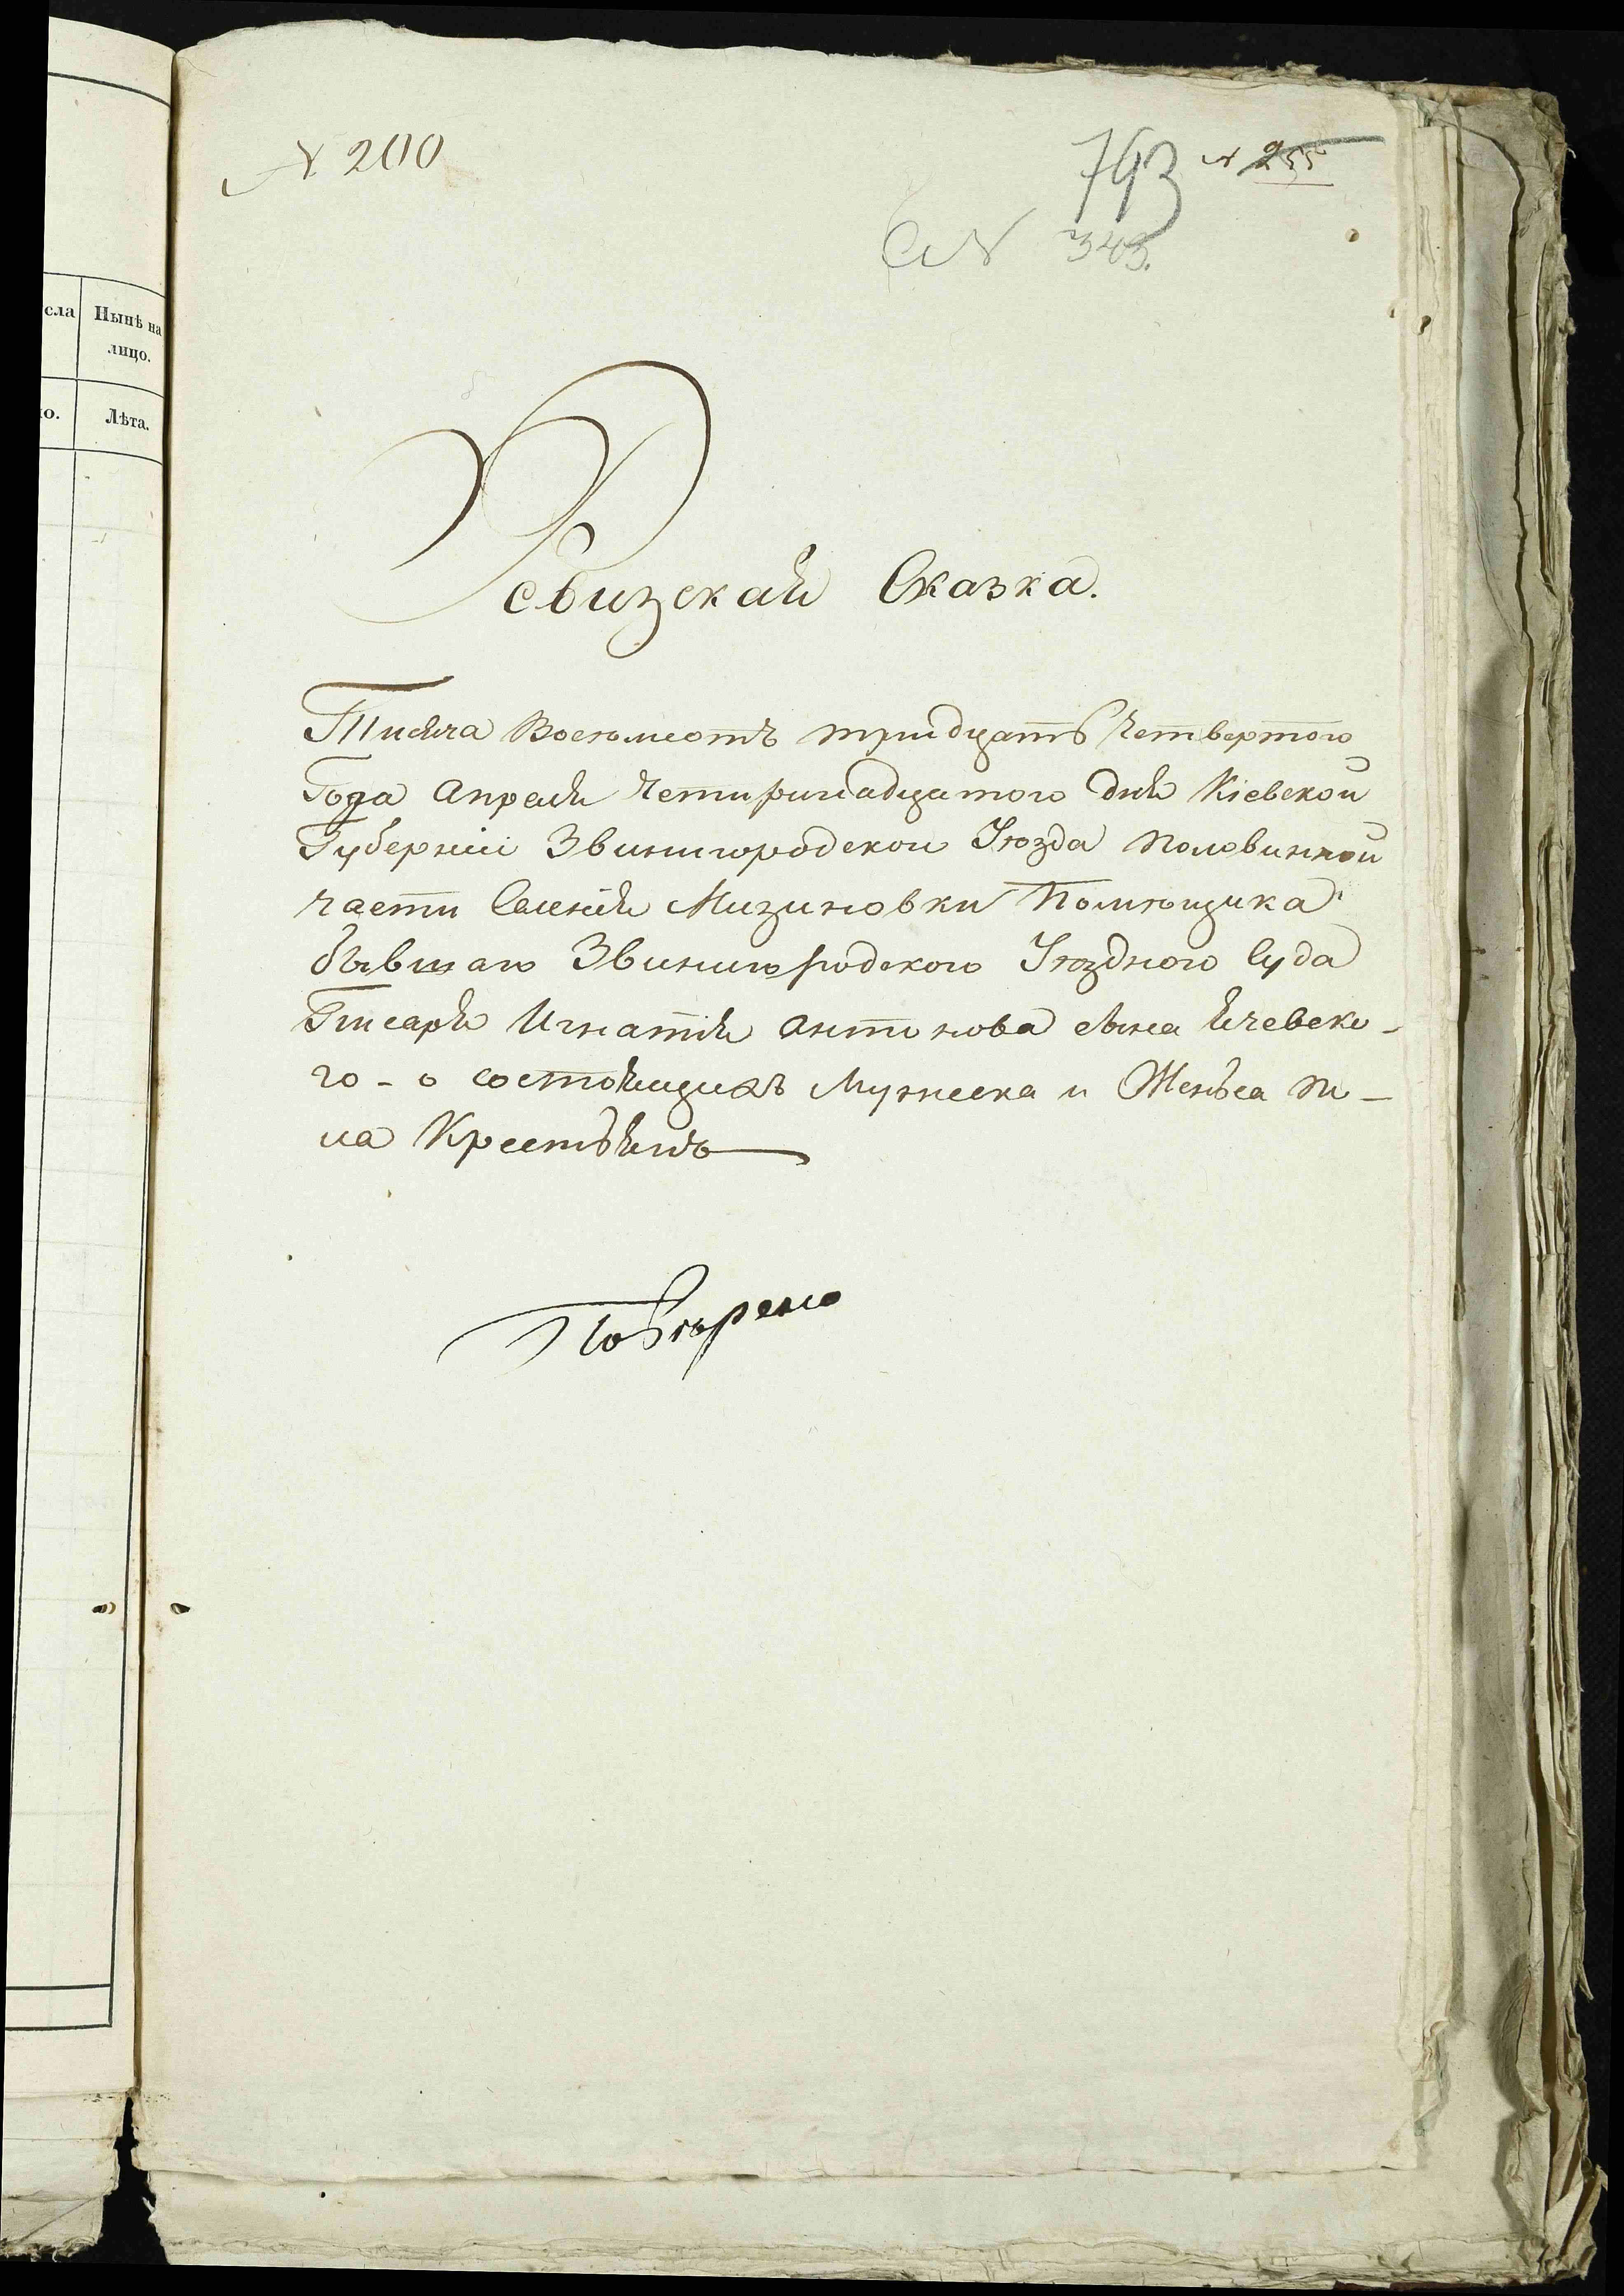 сла
Нынѣ на
лицо.
о.
Лѣта.
№ 200
793
№ 255
№ 343.
Ревизская Сказка.
Тисяча Восемсотъ тридцать Четвертого
Года Апреля Четиринадцатого дня Кіевской
Губерніи Звинигородской Уѣзда половинной
части Селенія Мизиновки Помѣщика
бывшаго Звинигородского Уѣздного Суда
Писаря Игнатія Антонова сына Ячевско-
го - о состоящихъ Мужеска и Женьска по-
ла Крестьянъ
Повѣрено